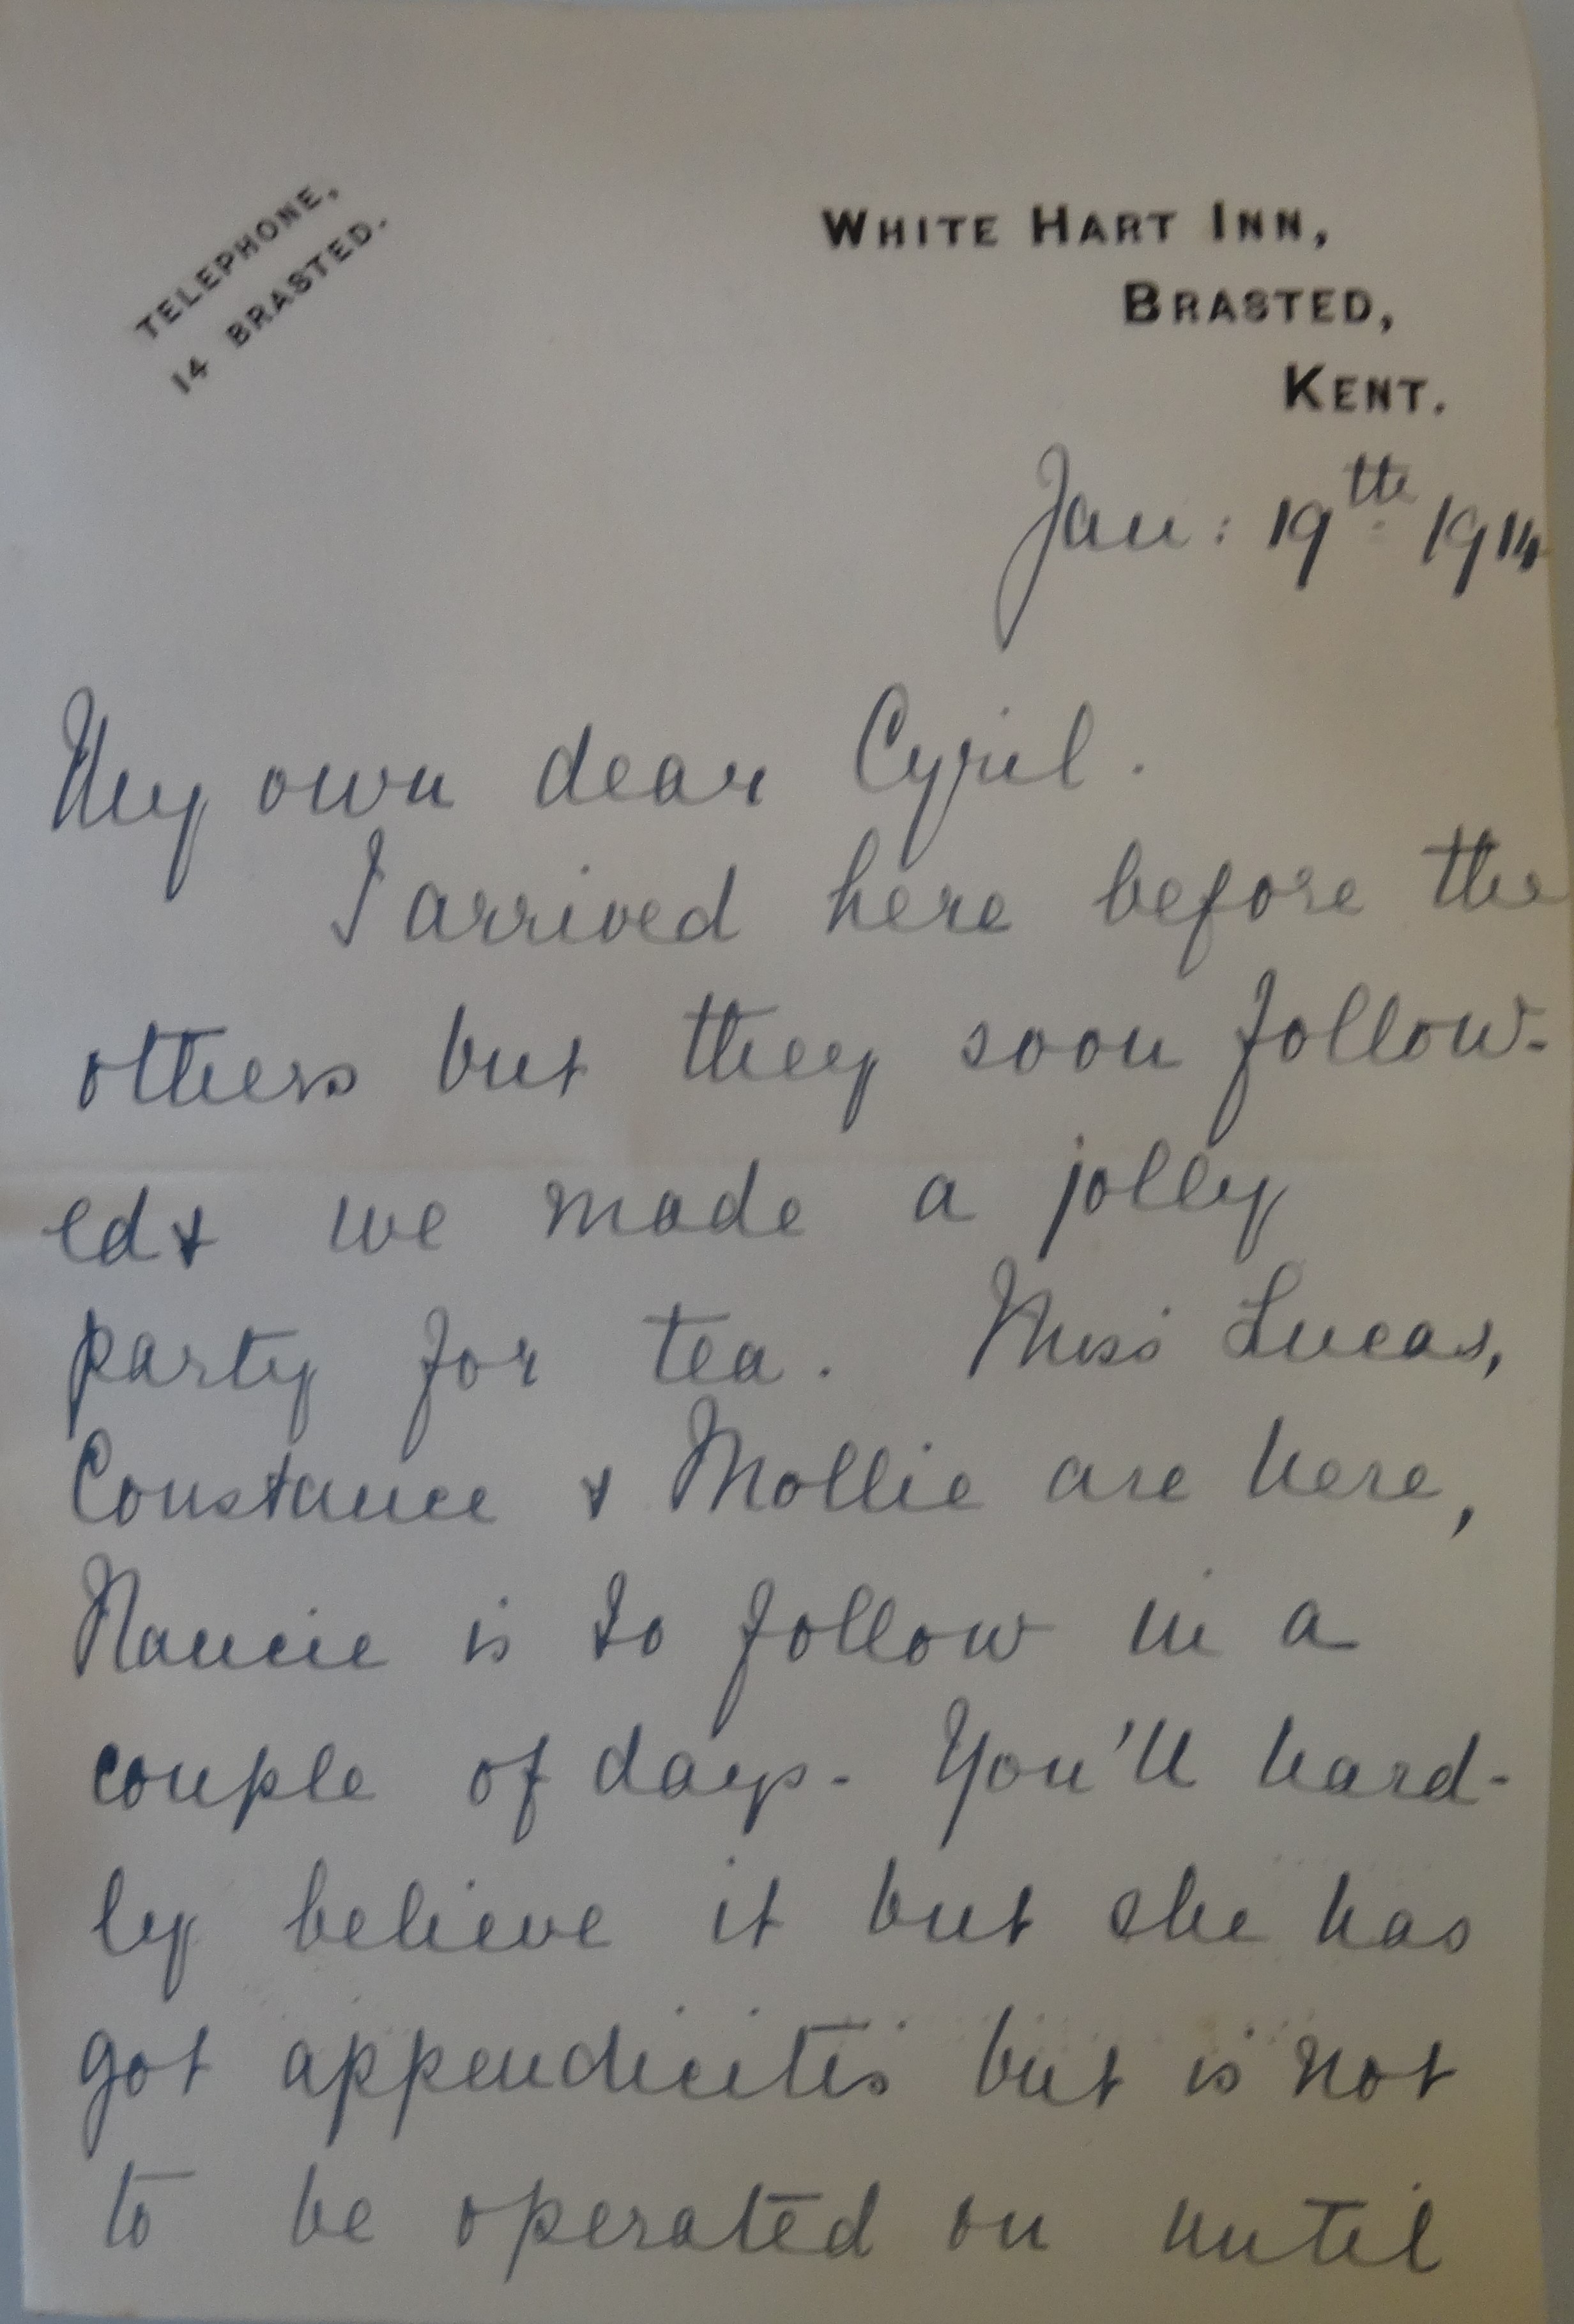 TELEPHONE,
14 BRASTED.
WHITE HART INN,
BRASTED,
KENT.
Jan: 19th 1914
My own dear Cyril.
I arrived here before the
others but they soon follow-
ed & we made a jolly
party for tea. Miss Lucas,
Constance & Mollie are here,
Nancie is to follow in a
couple of days. You'll hard-
ly believe it but she has
got appendicitis but is not
to be operated on until